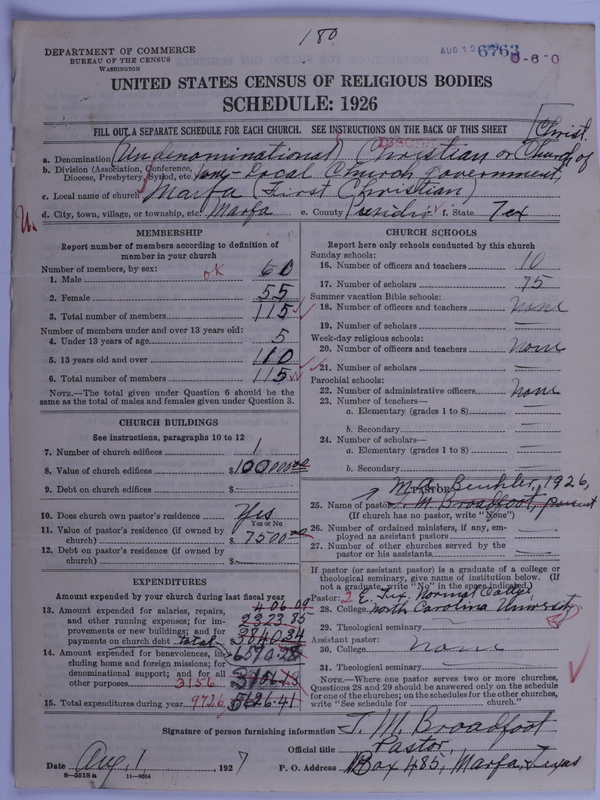 180
DEPARTMENT OF COMMERCE
BUREAU OF THE CENSUS
WASHINGTON
AUG 12 6763
0-6-0
UNITED STATES CENSUS OF RELIGIOUS BODIES
SCHEDULE: 1926
FILL OUT A SEPARATE SCHEDULE FOR EACH CHURCH. SEE INSTRUCTIONS ON THE BACK OF THIS SHEET
Christ.
a. Denomination (Undenominational) Christian or Church of
b. Division (Association, Conference, Diocese, Presbytery, Synod, etc.) None - Local Church government,
c. Local name of church Marfa (First Christian)
d. City, town, village, or township, etc. Marfa e. County Presidio f. State Tex
MEMBERSHIP
Report number of members according to definition of member in your church
Number of members, by sex:
1. Male ok 60
2. Female 55
3. Total number of members 115
Number of members under and over 13 years old:
4. Under 13 years of age 5
5. 13 years old and over 110
6. Total number of members 115
NOTE.—The total given under Question 6 should be the same as the total of males and females given under Question 3.
CHURCH BUILDINGS
See instructions, paragraphs 10 to 12
7. Number of church edifices 1
8. Value of church edifices $10000.00
9. Debt on church edifices $
10. Does church own pastor's residence Yes
Yes or No
11. Value of pastor's residence (if owned by church) $7500.00
12. Debt on pastor's residence (if owned by church) $
EXPENDITURES
Amount expended by your church during last fiscal year
406.09
13. Amount expended for salaries, repairs, and other running expenses; for improvements or new buildings; and for payments on church debt 2323.85
3840.34
Total 6570.28
14. Amount expended for benevolences, including home and foreign missions; for denominational support; and for all other purposes 3156 3156.13
15. Total expenditures during year 9726 5626.41
CHURCH SCHOOLS
Report here only schools conducted by this church
Sunday schools:
16. Number of officers and teachers 10
17. Number of scholars 75
Summer vacation Bible schools:
18. Number of officers and teachers none
19. Number of scholars
Week-day religious schools:
20. Number of officers and teachers none
21. Number of scholars
Parochial schools:
22. Number of administrative officers none
23. Number of teachers—
a. Elementary (grades 1 to 8)
b. Secondary
24. Number of scholars—
a. Elementary (grades 1 to 8)
b. Secondary
PASTOR
1926,
25. Name of pastor J. M. Broadfoot, present
(If church has no pastor, write "None")
26. Number of ordained ministers, if any, employed as assistant pastors
27. Number of other churches served by the pastor or his assistants
If pastor (or assistant pastor) is a graduate of a college or theological seminary, give name of institution below. (If not a graduate, write "No" in the space indicated.)
Pastor: E. Tex. Normal College
28. College North Carolina University
29. Theological seminary
Assistant pastor:
30. College none
31. Theological seminary
NOTE.—Where one pastor serves two or more churches, Questions 28 and 29 should be answered only on the schedule for one of the churches; on the schedules for the other churches, write "See schedule for church."
Signature of person furnishing information J. M. Broadfoot
Official title Pastor,
Date Aug. 1, 1927 P. O. Address Box 485, Marfa, Texas
8—5518 a 11—9654